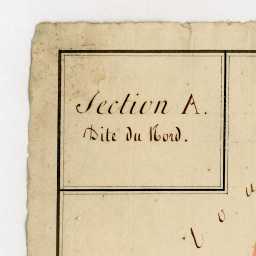 Section A.
Dite du Nord.